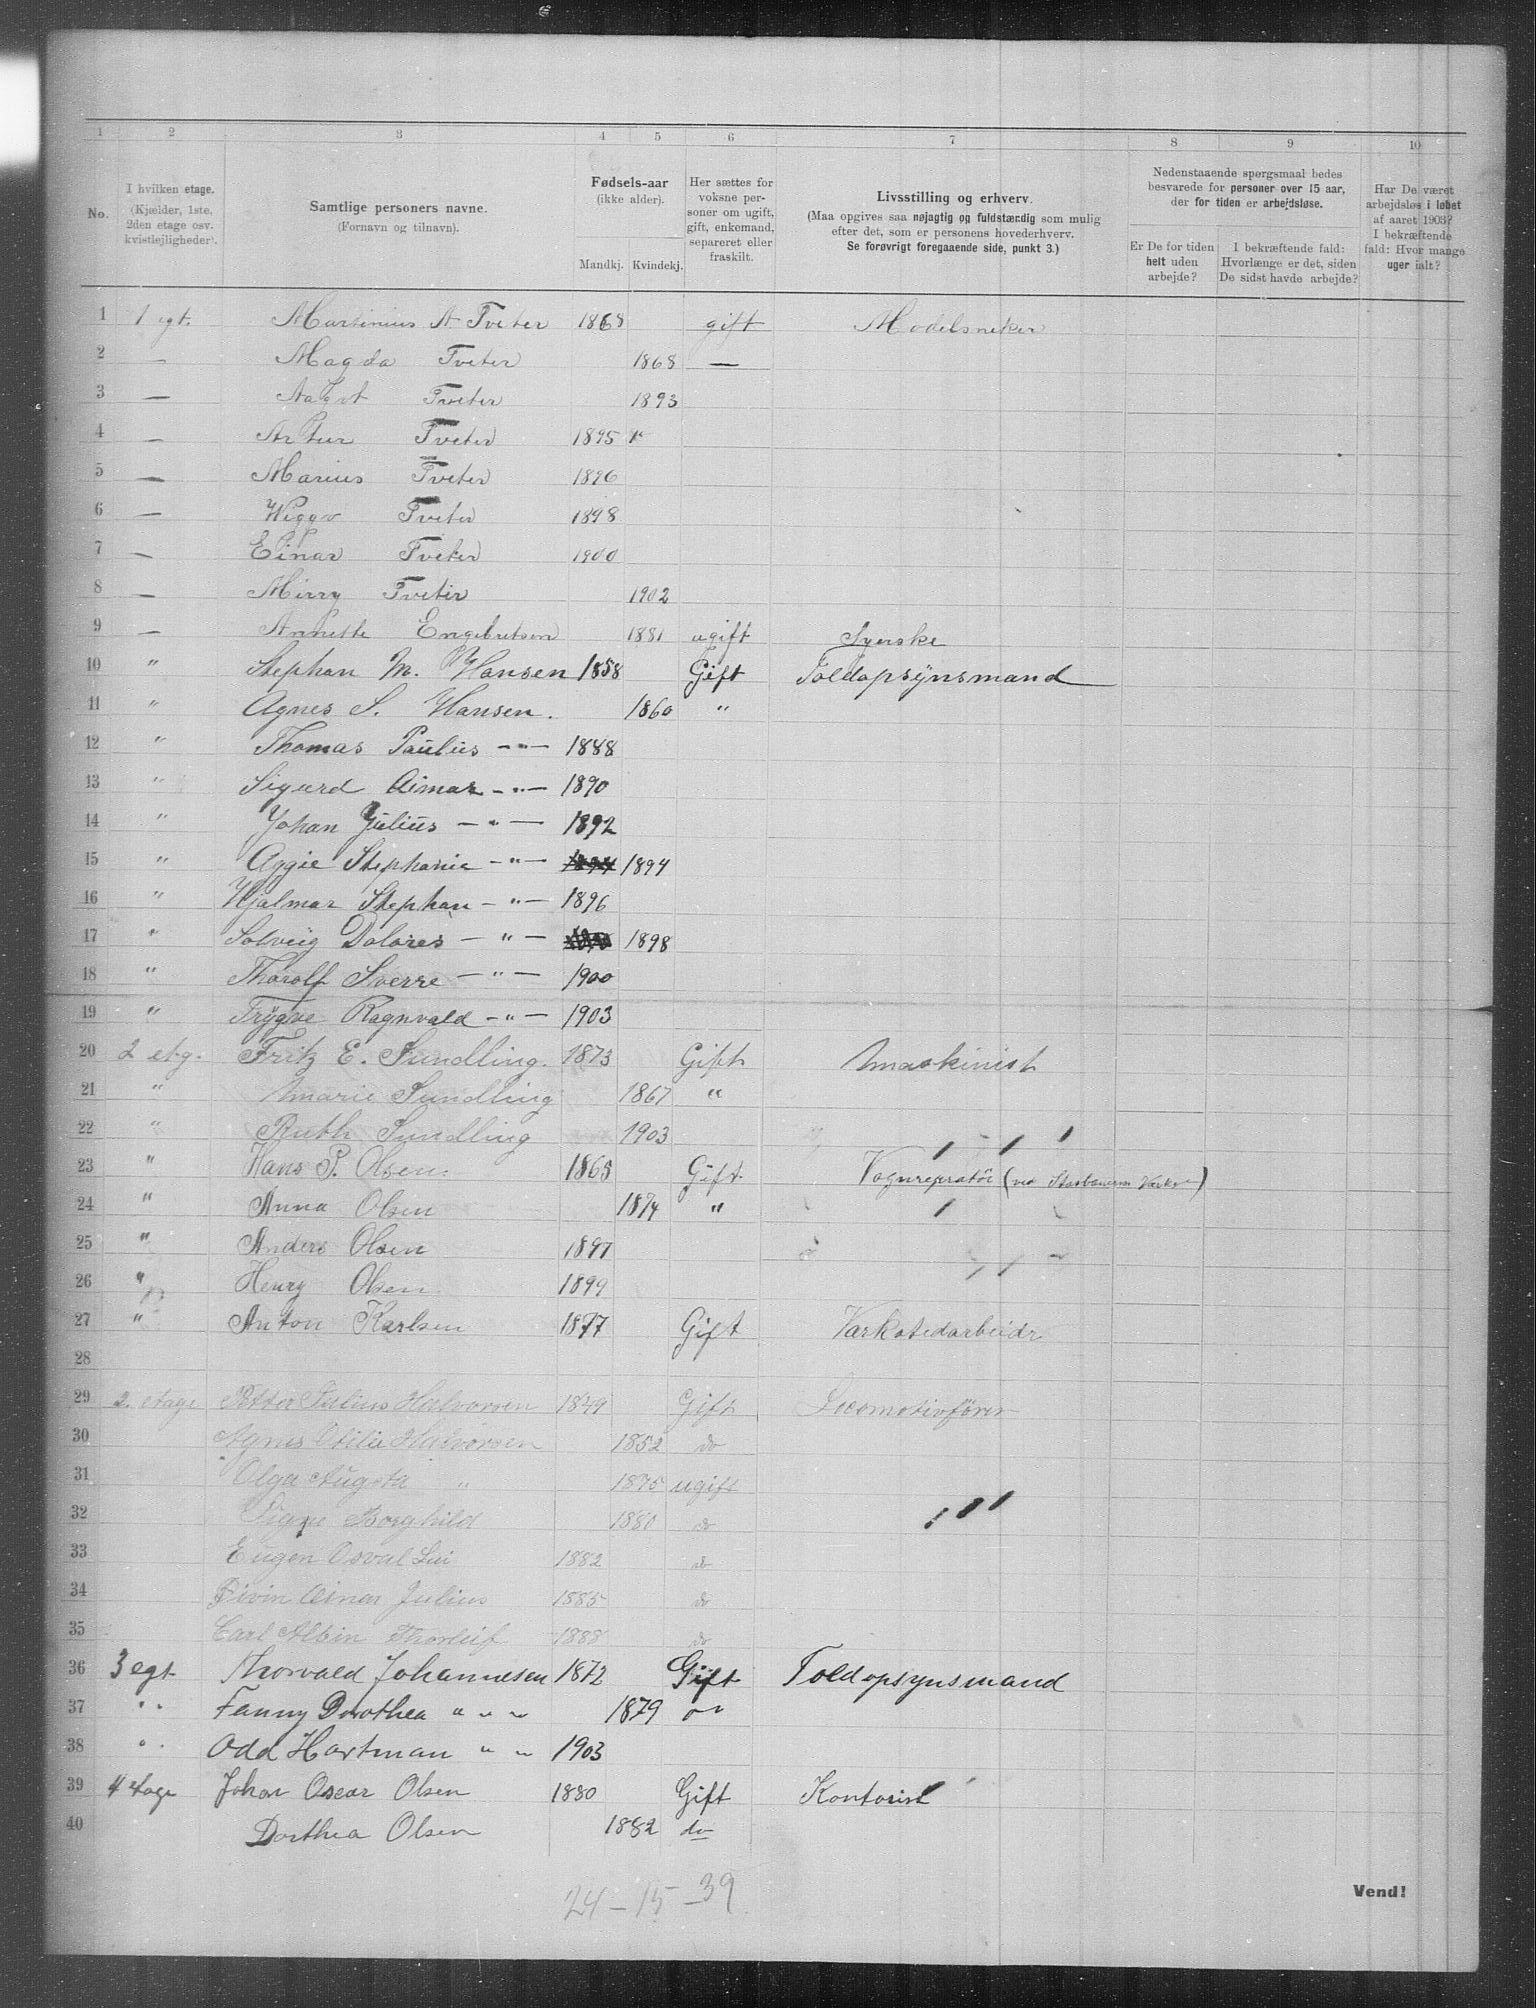 1 2 3 4 5 6 7 8 9 10
No. I hvilken etage. (Kjælder, 1ste, 2den etage osv. kvistleiligheder). Samtlige personers navne. (Fornavn og tilnavn). Fødsels-aar (ikke alder). Mandkj. Kvindekj. Her sættes for voksne personer om ugift, gift, enkemand, separeret eller fraskilt. Livsstilling og erhverv. (Maa opgives saa nøjagtig og fuldstændig som mulig efter det, som er personens hovederhverv. Se forøvrigt foregaaende side, punkt 3.) Nedenstaaende spørgsmaal bedes besvarede for personer over 15 aar, der for tiden er arbejdsløse. Er De for tiden helt uden arbejde? I bekræftende fald: Hvorlænge er det, siden De sidst havde arbejde? Har De været arbejdsløs i løbet af aaret 1903? I bekræftende fald: Hvor mange uger ialt?
1 1 egt. Martinius A Tveter 1868 gift Modelsneker
2 — Magda Tveter 1868 —
3 — Aagot Tveter 1893
4 — Artur Tveter 1895
5 — Marius Tveter 1896
6 — Wiggo Tveter 1898
7 — Einar Tveter 1900
8 — Mirry Tveter 1902
9 — Annette Engebretsen 1881 ugift Syerske
10 " Stephan M. Hansen 1858 Gift Toldopsynsmand
11 " Agnes S. Hansen. 1860 "
12 " Thomas Paulius — " — 1888
13 " Sigurd Aimar — " — 1890
14 " Johan Julius — " — 1892
15 " Aggie Stephanie — " — 1894
16 " Hjalmar Stephan — " — 1896
17 " Solveig Dolores — " — 1898
18 " Thorolf Sverre — " — 1900
19 " Trygve Ragnvald — " — 1903
20 2 etg. Fritz E. Sundling. 1873 Gift Maskinist
21 " Marie Sundling 1867 "
22 " Ruth Sundling 1903
23 " Hans P. Olsen. 1865 Gift. Vognrepratör (ved
24 " Anna Olsen 1874 "
25 " Anders Olsen 1897
26 " Henry Olsen 1899
27 " Anton Karlsen 1877 Gift Varkstedarbeidr
28
29 2. etage Petter Julius Halvorsen 1849 Gift Locomotivfører
30 Agnes Otilie Halvorsen 1852 do
31 Olga Augsta " 1875 ugift
32 Signe Borghild 1880 do
33 Eugen Osval Lui 1882 do
34 Eivin Einar Julius 1885 do
35 Carl Albin Thorleif 1888 do
36 3 egt Thorvald Johannesen 1872 Gift Toldopsynsmand
37 " Fanny Dorothea " " " 1879
38 " Odd Hartman " " 1903
39 4 etage Johan Oscar Olsen 1880 Gift Kontorist
40 Dorthea Olsen 1882 do
24 – 15 – 39
Vend!